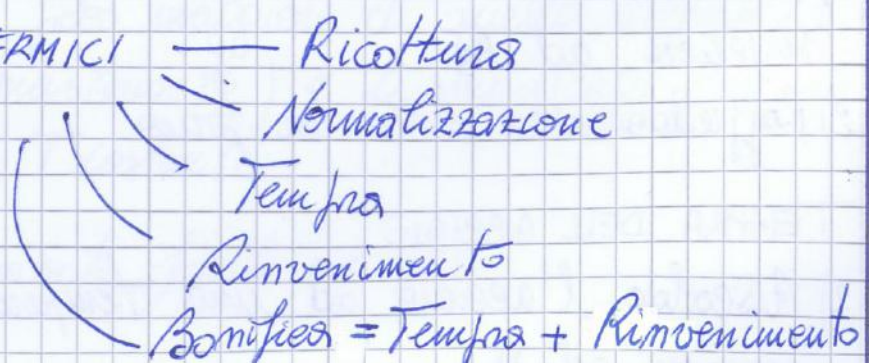 ERMICI — Ricottura
Normalizzazione
Tempra
Rinvenimento
Bonifica = Tempra + Rinvenimento